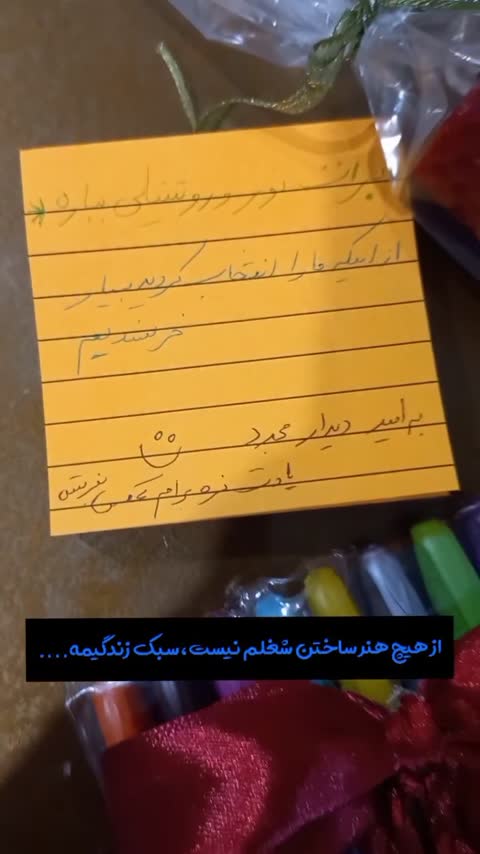 برات نور و روشنیلی بباره
از اینکه ما را انتخاب کردید بسیار
خرسندیم
به امید دیدار مجدد
یادت نره برام عکس بفرستی
از هیچ هنر ساختن شغلم نیست، سبک زندگیمه....